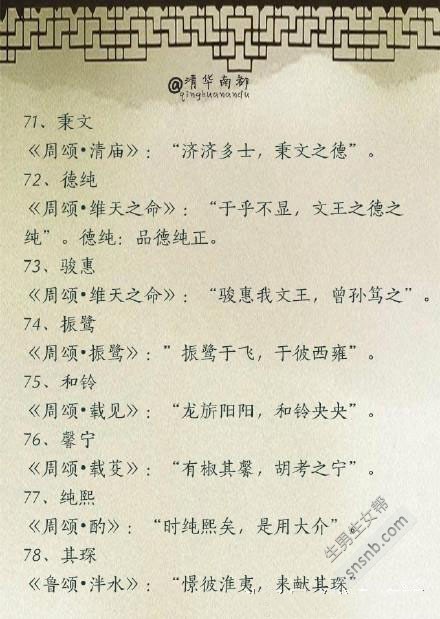 @清华南都
qinghuanandu
71、秉文
《周颂•清庙》:“济济多士，秉文之德”。
72、德纯
《周颂•维天之命》:“于乎不显，文王之德之
纯”。德纯：品德纯正。
73、骏惠
《周颂•维天之命》:“骏惠我文王，曾孙笃之”。
74、振鹭
《周颂•振鹭》:”振鹭于飞，于彼西雍”。
75、和铃
《周颂•载见》:“龙旂阳阳，和铃央央”。
76、馨宁
《周颂•载芟》:“有椒其馨，胡考之宁”。
77、纯熙
《周颂•酌》:“时纯熙矣，是用大介”。
78、其琛
《鲁颂•泮水》:“憬彼淮夷，来献其琛”
生男生女帮
snsnb.com